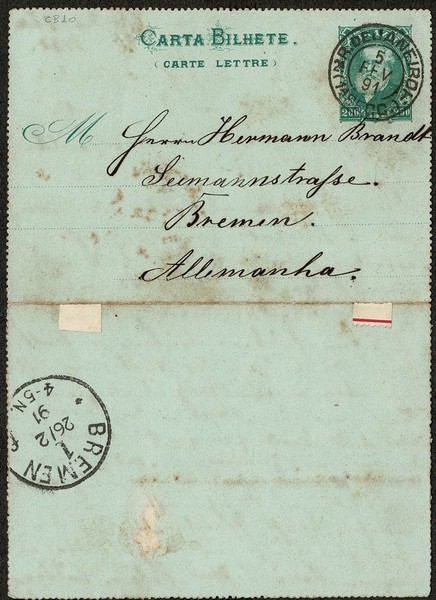 CB10
CARTA BILHETE.
(CARTE LETTRE)
RIO DE JANEIRO
5
FEV
91
M Herrn Hermann Brandt
Seemannstrasse.
Bremen.
Allemanha.
BREMEN
1
26/2
91
4-5N